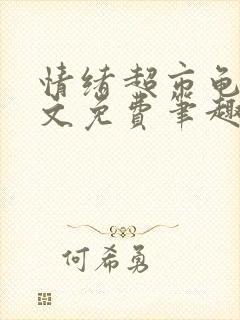 情绪超市龟
文免费笔趣
何希勇